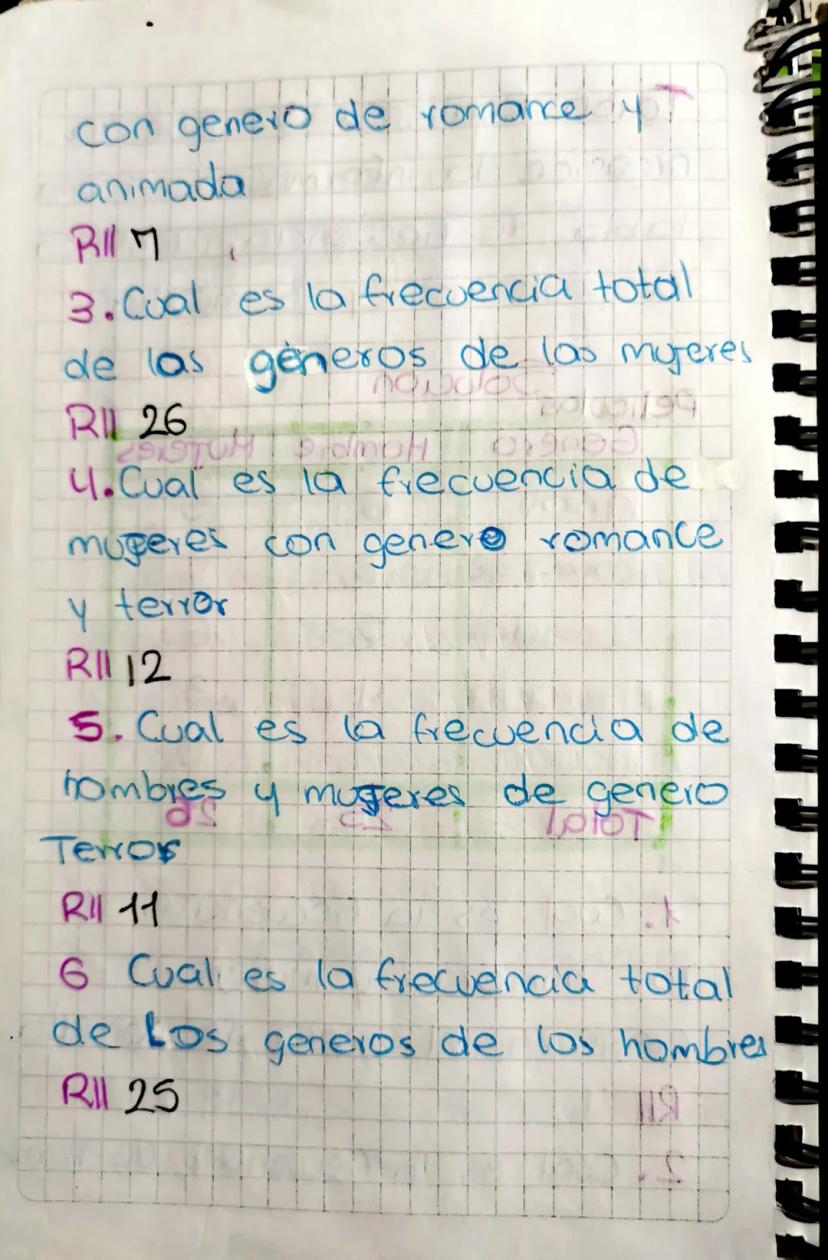 con genero de romance y
animada
R// 7
3. Cual es la frecuencia total
de las géneros de las mujeres
R// 26
4. Cual es la frecuencia de
mujeres con genero romance
y terror
R// 12
5. Cual es la frecuencia de
hombres y mujeres de genero
Terror
R// 11
6 Cual es la frecuencia total
de Los generos de los hombres
R// 25